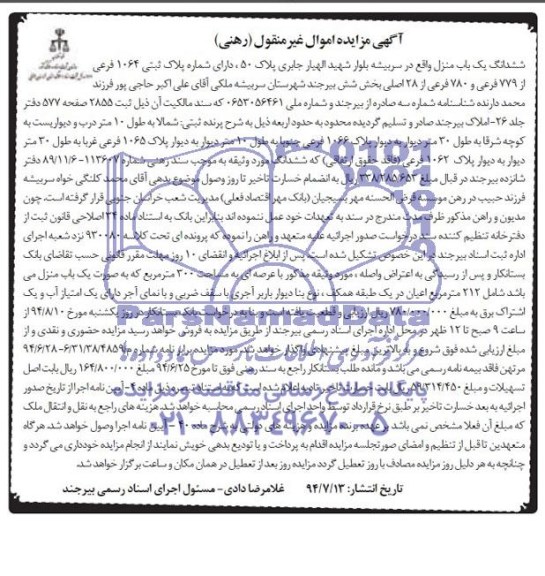 آگهی مزایده اموال غیرمنقول (رهنی)
ششدانگ یک باب منزل واقع در سربیشه بلوار شهید الهیار جابری پلاک ۵۰، دارای شماره پلاک ثبتی ۱۰۶۴ فرعی
از ۷۷۹ فرعی و ۷۸۰ فرعی از ۲۸ اصلی بخش شش بیرجند شهرستان سربیشه ملکی آقای علی اکبر حاجی پور فرزند
محمد دارنده شناسنامه شماره سه صادره از بیرجند و شماره ملی ۰۶۵۳۰۵۶۴۶۱ که سند مالکیت آن ذیل ثبت ۲۸۵۵ صفحه ۵۷۷ دفتر
جلد ۲۶-املاک بیرجند صادر و تسلیم گردیده محدود به حدود اربعه ذیل به شرح پرونده ثبتی: شمالا به طول ۱۰ متر درب و دیواریست به
کوچه شرقا به طول ۳۰ متر دیوار به دیوار پلاک ۱۰۶۶ فرعی جنوبا به طول ۱۰ متر دیوار به دیوار پلاک ۱۰۶۵ فرعی غربا به طول ۳۰ متر
دیوار به دیوار پلاک ۱۰۶۲ فرعی (فاقد حقوق ارتفاقی) که ششدانگ مورد وثیقه به موجب سند رهنی شماره ۱۱۳۶۰۷-۸۹/۱۱/۶ دفتر
شانزده بیرجند در قبال مبلغ ۳۳۸/۳۸۵/۶۵۳ ریال به انضمام خسارت تاخیر تا روز وصول موضوع بدهی آقای محمد کلنگی خواه سربیشه
فرزند حبیب در رهن موسسه قرض الحسنه مهر بسیجیان (بانک مهر اقتصاد فعلی) مدیریت شعب خراسان جنوبی قرار گرفته است، چون
مدیون و راهن مذکور ظرف مدت مندرج در سند به تعهدات خود عمل ننموده اند بنابراین بانک به استناد ماده ۳۴ اصلاحی قانون ثبت از
دفترخانه تنظیم کننده سند درخواست صدور اجرائیه علیه متعهد و راهن را نموده که پرونده ای تحت کلاسه ۹۳۰۰۸۰ نزد شعبه اجرای
اداره ثبت اسناد بیرجند در این خصوص تشکیل شده است، پس از ابلاغ اجرائیه و انقضای ۱۰ روز مهلت مقرر قانونی حسب تقاضای بانک
بستانکار و پس از رسیدگی به اعتراض واصله، مورد وثیقه مذکور با عرصه ای به مساحت ۳۰۰ مترمربع که به صورت یک باب منزل می
باشد شامل ۲۱۲ مترمربع اعیان در یک طبقه همکف، نوع بنا دیوار باربر آجری با سقف ضربی و با نمای آجر دارای یک امتیاز آب و یک
اشتراک برق به مبلغ ۷۸۰/۰۰۰/۰۰۰ ریال ارزیابی و قطعیت یافته است و بنا به درخواست بانک بستانکار در روز یکشنبه مورخ ۹۴/۸/۱۰ از
ساعت ۹ صبح تا ۱۲ ظهر در محل اداره اجرای اسناد رسمی بیرجند از طریق مزایده به فروش خواهد رسید مزایده حضوری و نقدی و از
مبلغ ارزیابی شده فوق شروع و به بالاترین مبلغ پیشنهادی واگذار خواهد شد، مورد مزایده برابر نامه شماره ۶/۳۱/۳۸/۴۸۵۹-۹۴/۶/۲۸
مرتهن فاقد بیمه نامه رسمی می باشد و مانده طلب بستانکار راجع به سند رهنی فوق تا مورخ ۹۴/۶/۲۵ مبلغ ۱۶۴/۸۰۰/۰۰۰ ریال بابت اصل
تسهیلات و مبلغ ۵۹/۳۱۴/۴۵۰ ریال بابت خسارت تاخیر تادیه اعلام شده است که به استناد تبصره ذیل ماده ۴-آیین نامه اجرا از تاریخ صدور
اجرائیه به بعد خسارت تاخیر بر طبق نرخ قرارداد توسط واحد اجرای اسناد رسمی محاسبه خواهد شد. هزینه های راجع به نقل و انتقال ملک
که مبلغ آن فعلا مشخص نمی باشد بر عهده برنده مزایده و هزینه های دولتی به شرح ماده ۴۰ آیین نامه اجرا وصول خواهد شد. هرگاه
متعهدین تا قبل از تنظیم و امضای صورتجلسه مزایده اقدام به پرداخت و یا تودیع بدهی خویش نمایند از انجام مزایده خودداری می گردد و
چنانچه به هر دلیل روز مزایده مصادف با روز تعطیل گردد مزایده روز بعد از تعطیل در همان مکان و ساعت برگزار خواهد شد.
تاریخ انتشار: ۹۴/۷/۱۳ غلامرضا دادی- مسئول اجرای اسناد رسمی بیرجند
ParsNamadData
پایگاه اطلاع رسانی مناقصه و مزایده
۰۲۱-۸۸۳۴۹۶۷۰-۵